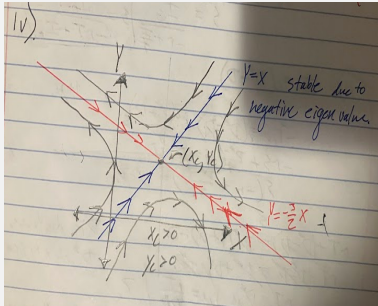 iv).
Y
Y=X stable due to
negative eigen values
(Xc, Yc)
Y=-3/2 X
X
Xc>0
Yc>0